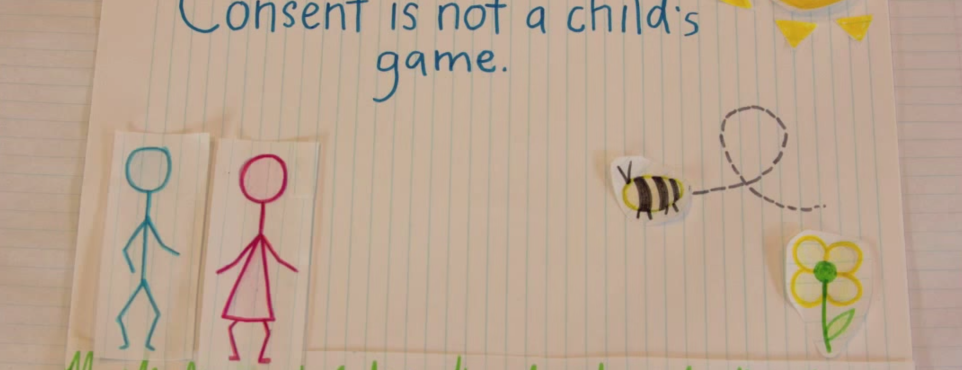 Consent is not a child's
game.